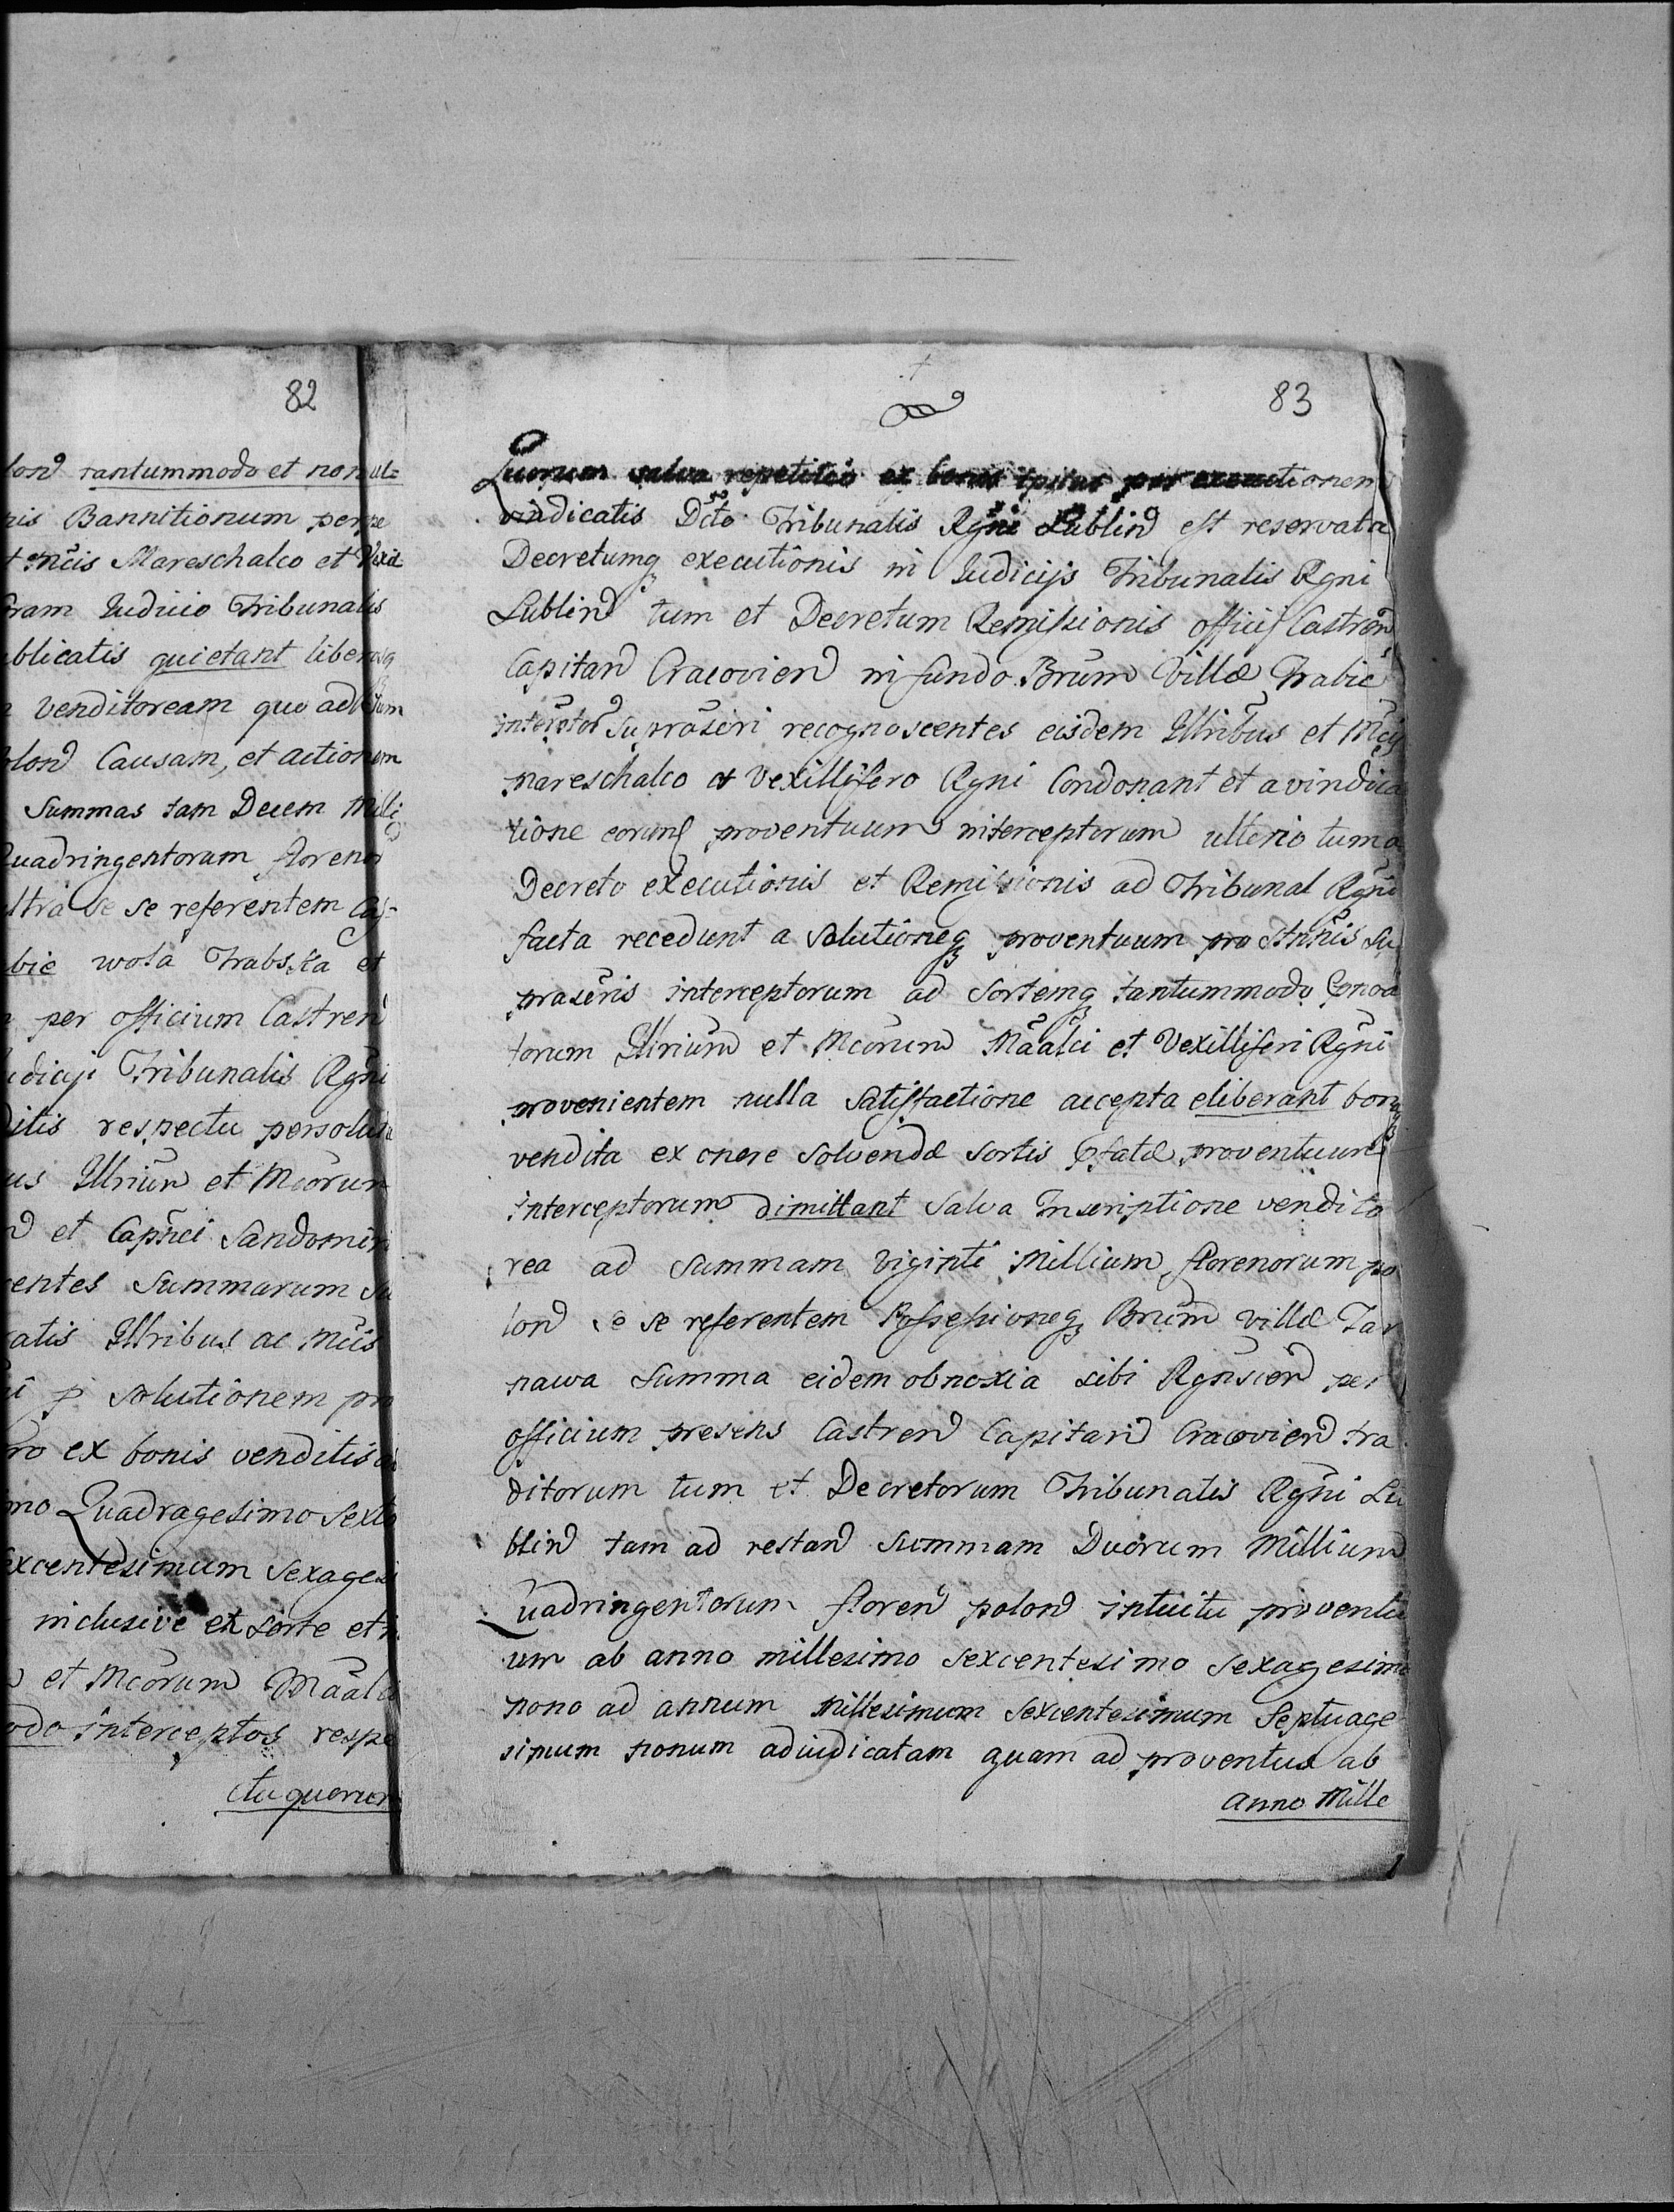 82
lond tantummodo et non ul=
ris Bannitionum perpe
t mcis Mareschalco et Vexil
fram Judicio Tribunalis
blicatis quietant liberosq
venditoream quo ad Sum
olond Causam, et actionem
Summas tam Decem Milli
Quadringentorum florenor
ultra se se referentem Cas=
bie wola Trabska et
per officium Castren
udicij Tribunalis Rgni
ditis respectu persoluta
us Illrium et Mcorum
d et Capnei Sandomiri
centes Summarum Su
catis Illribus ac Mcis
ni p solutionem pro
ro ex bonis venditis
mo Quadragesimo Sexto
excentesimum Sexagesi
inclusive ex Sorte et
d et Mcorum Maalci
odo interceptos respe
ctu quorum
83
Quorum salva repetitio ex bonis ipsius per executionem
vindicatis Dcto Tribunalis Rgni Lublind est reservata
Decretumq executionis in Judicijs Tribunalis Rgni
Lublind tum et Decretum Remissionis officij Castren
Capitand Cracoviend in fundo Brum Villæ Trabie
Supraseri recognoscentes eisdem Illribus et Mcis
Mareschalco et Vexillifero Rgni Condonant et a vindica
tione eorund proventuum interceptorum ulterio tum a
Decreto executionis et Remissionis ad Tribunal Rgni
facta recedunt a Solutioneq proventuum pro Annis Su
praseris interceptorum ad Sortemq tantummodo Conda
torum Illrium et Mcorum Maalci et Vexilliferi Rgni
provenientem nulla Satisfactione accepta eliberant bonaq
vendita ex onere Solvendæ Sortis pfatæ proventuum
interceptorum dimittant Salva Inscriptione vendito
rea ad Summam viginti Millium florenorum po
lond se se referentem Possessioneq Brum villæ Tar
nawa Summa eidem obnoxia sibi Rgnsciend per
officium presens Castrend Capitand Cracoviend tra
ditorum tum et Decretorum Tribunalis Rgni Lu
blind tam ad restand Summam Duorum Millium
Quadringentorum florend polond intuitu proventu
um ab anno millesimo Sexcentesimo Sexagesimo
nono ad annum Millesimum Sexcentesimum Septuage
simum nonum adiudicatam quam ad proventus ab
anno Mille